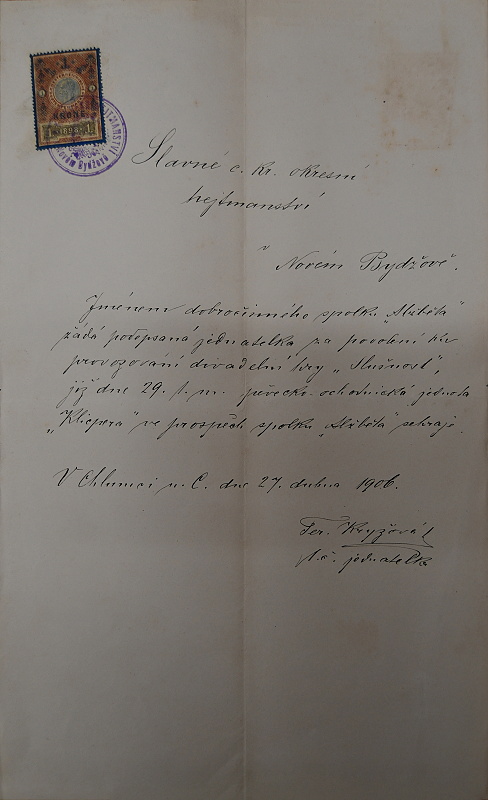 1
KRONE
1898
Slavné c. kr. okresní
hejtmanství
v
Novém Bydžově.
Jménem dobročinného spolku „Alžběta“
žádá podepsaná jednatelka za povolení ku
provozování divadelní hry „Slušnost“,
již dne 29. t. m. pěvecko-ochotnická jednota
„Klicpera“ ve prospěch spolku „Alžběta“ sehraje.
V Chlumci n. C. dne 27. dubna 1906.
Ter. Kryžová
t. č. jednatelka